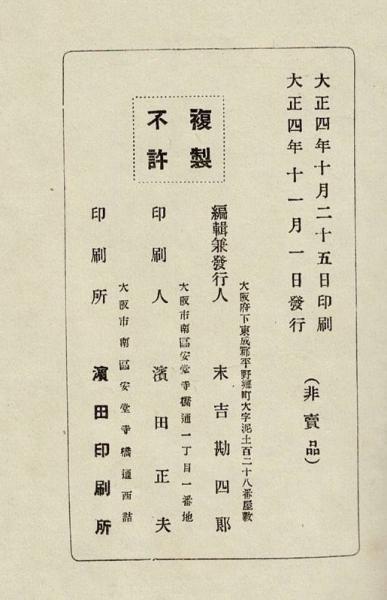 大正四年十月二十五日印刷
大正四年十一月一日發行
(非賣品)
複製
不許
大阪府下東成郡平野郷町大字泥土百二十八番屋敷
編輯兼發行人 末吉勘四郎
大阪市南區安堂寺橋通一丁目一番地
印刷人 濱田正夫
大阪市南區安堂寺橋通西詰
印刷所 濱田印刷所